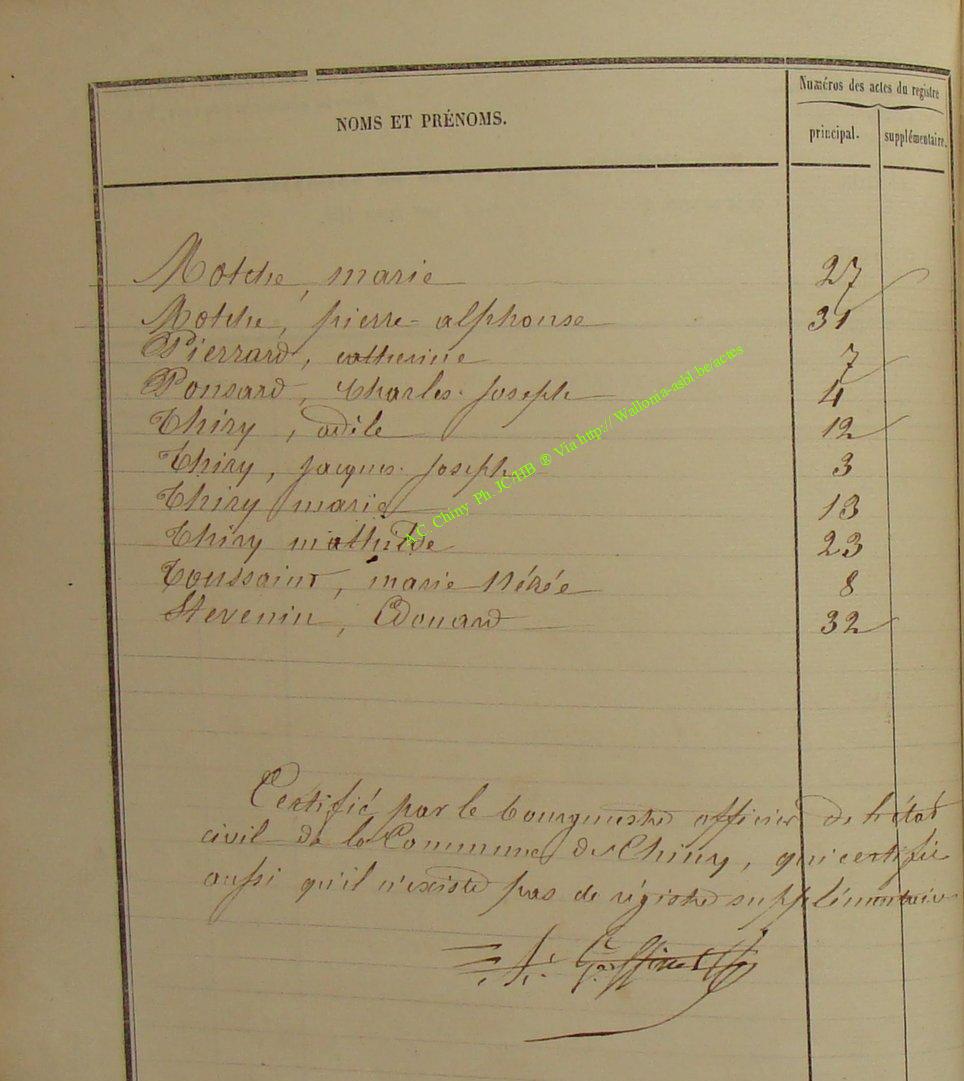 NOMS ET PRÉNOMS.
Numéros des actes du registre
principal.
supplémentaire.
Motche, marie 27
Motche, pierre-alphonse 31
Pierrard, catherine 7
Ponsard, Charles-Joseph 4
Thiry, adèle 12
Thiry, Jacques-Joseph 3
Thiry marie 13
Thiry mathilde 23
Toussaint, marie 8
Stevenin, Edouard 32
Certifié par le bourgmestre officier de l'état
civil de la Commune de Chiny, qui certifie
aussi qu'il n'existe pas de régistre supplémentaire
A.C. Chiny Ph. JC/HB ® Via http://Wallonia-asbl.be/actes